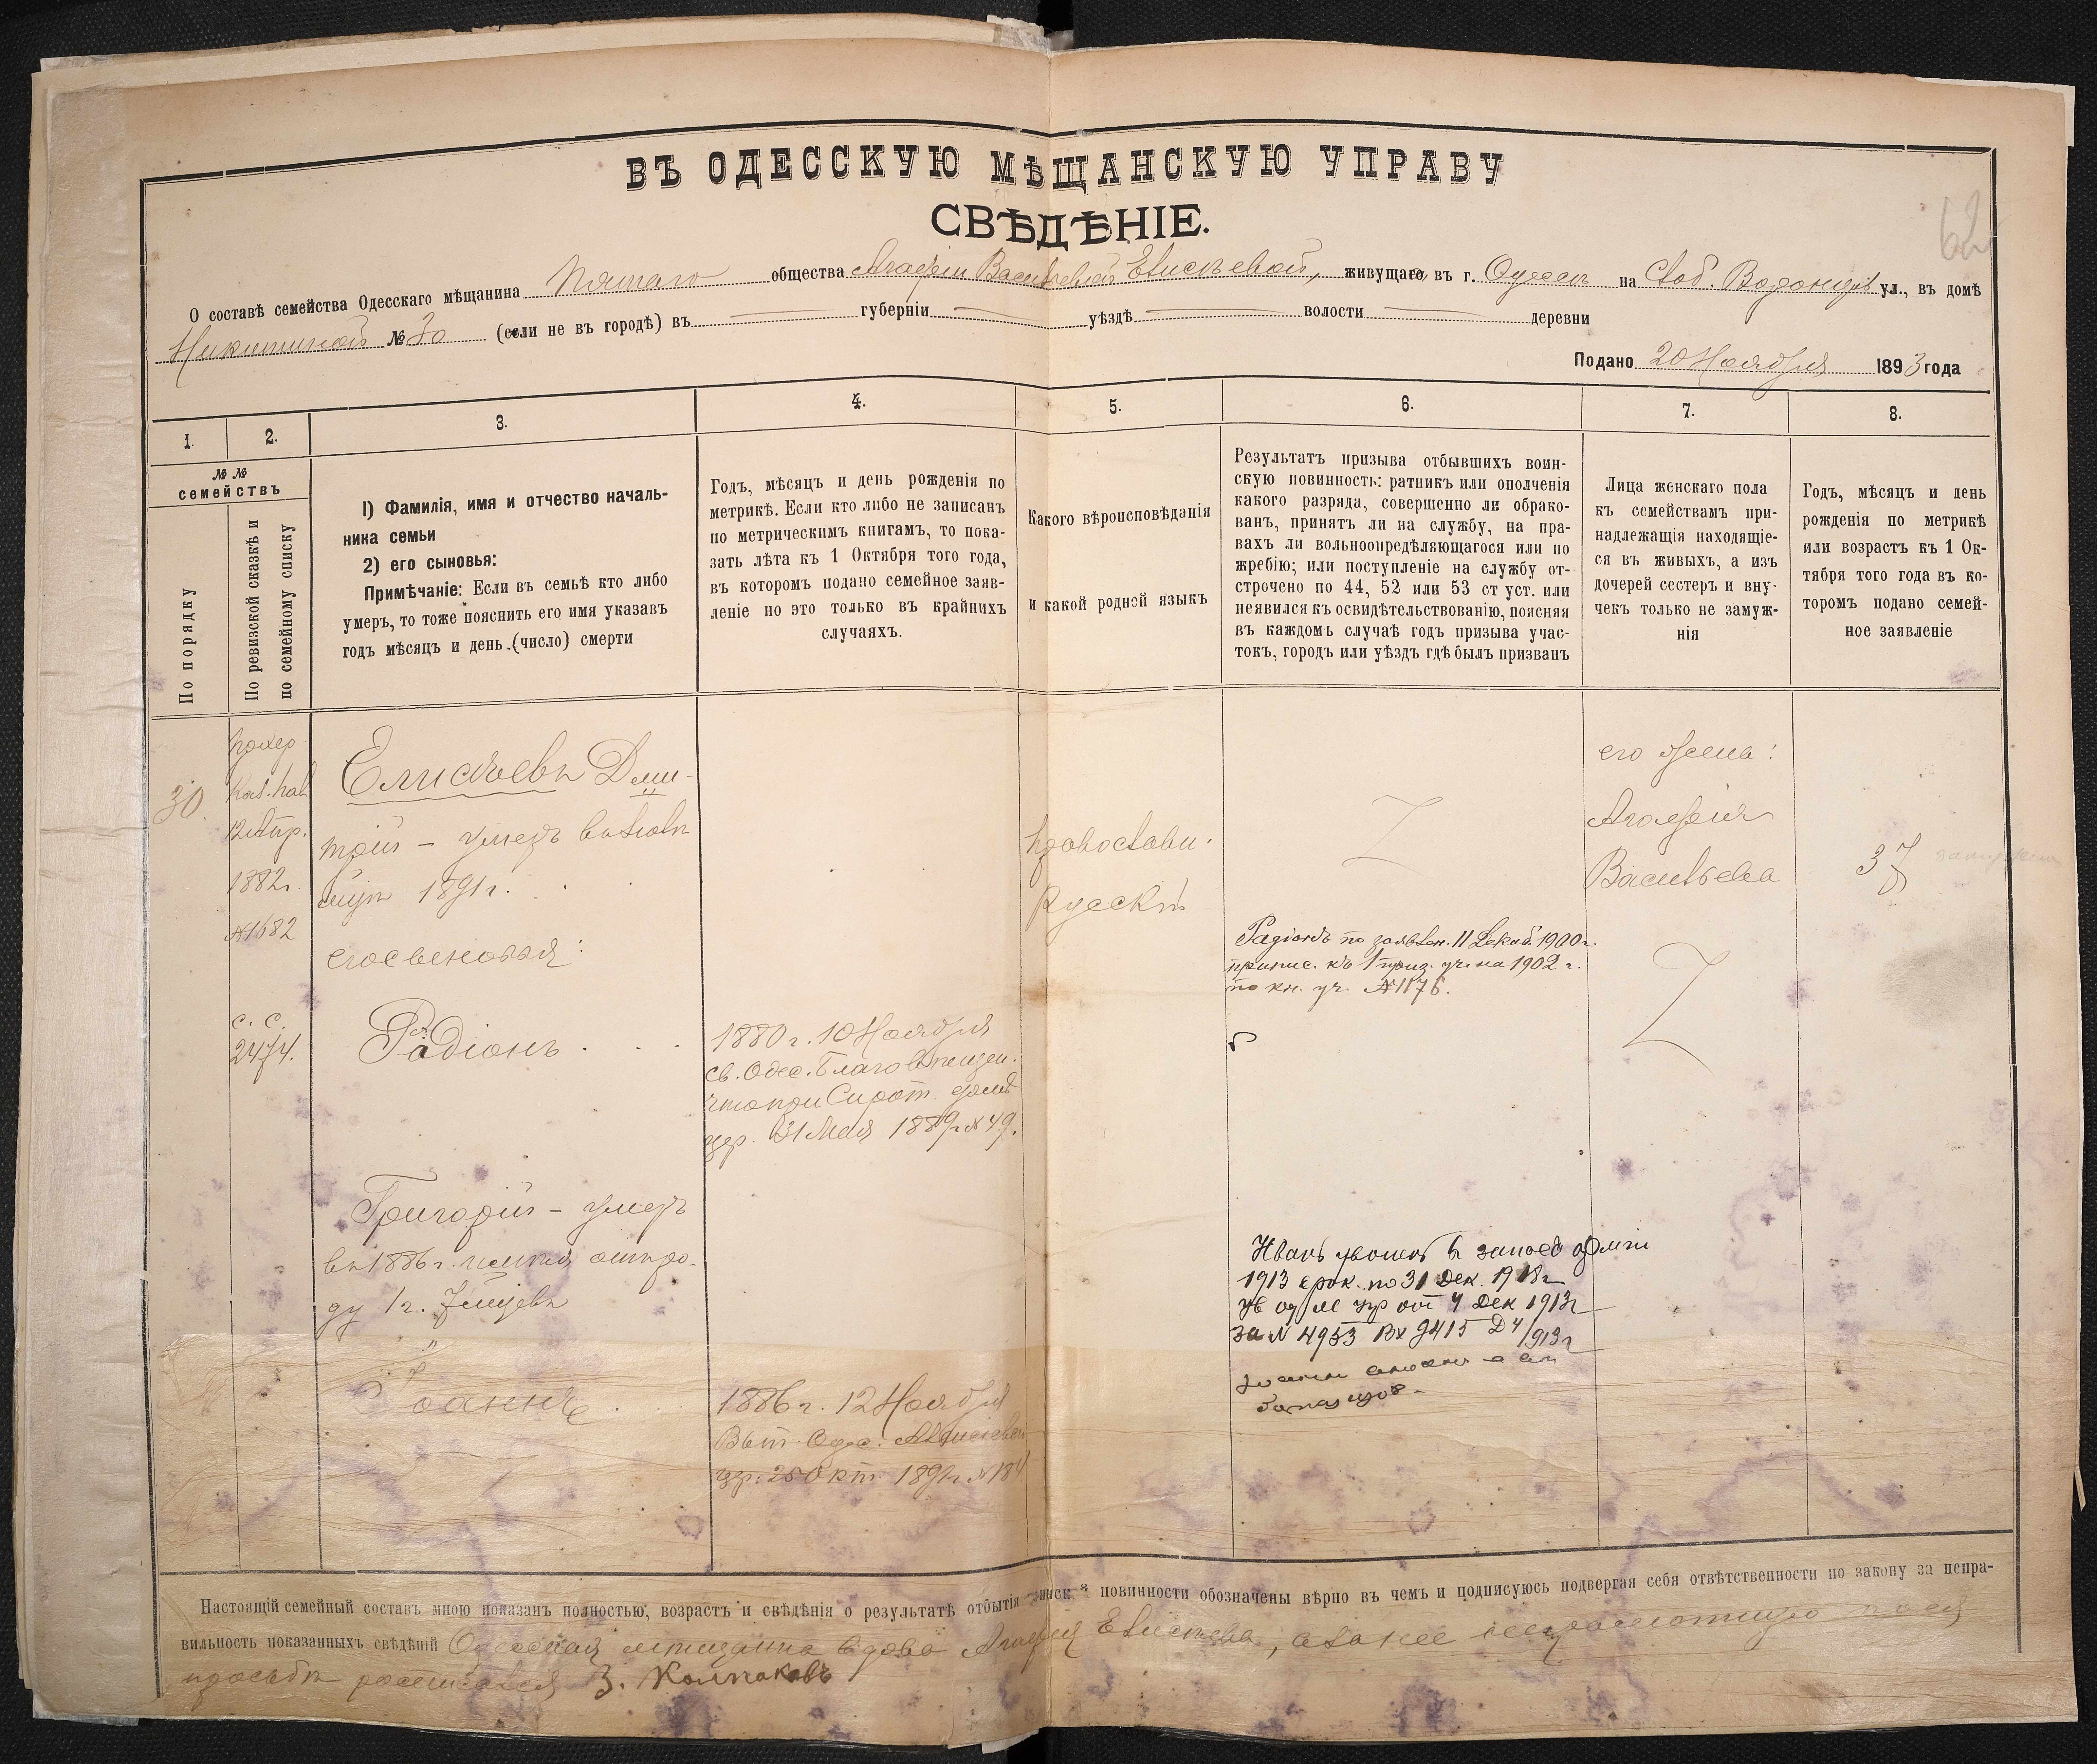 ВЪ ОДЕССКУЮ МѢЩАНСКУЮ УПРАВУ
СВѢДѢНІЕ.
62
О составѣ семейства Одесскаго мѣщанина Пятаго общества Агафіи Васильевой Елисѣевой, живущаго въ г. Одессѣ на Слоб. Воронцов. ул., въ домѣ
Никитиной № 30 (если не въ городѣ) въ губерніи уѣздѣ волости деревни
Подано 20 Ноября 1893 года
1. 2. 3. 4. 5. 6. 7. 8.
№ №
семействъ
По порядку
По ревизской сказкѣ и
по семейному списку
1) Фамилія, имя и отчество началь-
ника семьи
2) его сыновья:
Примѣчаніе: Если въ семьѣ кто либо
умеръ, то тоже пояснить его имя указавъ
годъ мѣсяцъ и день (число) смерти
Годъ, мѣсяцъ и день рожденія по
метрикѣ. Если кто либо не записанъ
по метрическимъ книгамъ, то пока-
зать лѣта къ 1 Октября того года,
въ которомъ подано семейное заяв-
леніе но это только въ крайнихъ
случаяхъ.
Какого вѣроисповѣданія
и какой родной языкъ
Результатъ призыва отбывшихъ воин-
скую повинность: ратникъ или ополченія
какого разряда, совершенно ли обрако-
ванъ, принятъ ли на службу, на пра-
вахъ ли вольноопредѣляющагося или по
жребію; или поступленіе на службу от-
строчено по 44, 52 или 53 ст уст. или
неявился къ освидѣтельствованію, поясняя
въ каждомь случаѣ годъ призыва учас-
токъ, городъ или уѣздъ гдѣ былъ призванъ
Лица женскаго пола
къ семействамъ при-
надлежащія находящіе-
ся въ живыхъ, а изъ
дочерей сестеръ и вну-
чекъ только не замуж-
нія
Годъ, мѣсяцъ и день
рожденія по метрикѣ
или возрастъ къ 1 Ок-
тября того года въ ко-
торомъ подано семей-
ное заявленіе
30.
Каз. пал.
12 Апр.
1882 г.
№ 1682
с. с.
2474.
Елисѣевъ Дми-
трій – умеръ въ
1891 г.
его сыновья:
Радіонъ
Григорій – умеръ
въ 1886 г.
ду 1 г.
Іоаннъ
1880 г. 10 Ноября
св. Одес. Благовѣщен.
что при Сирот. домѣ
цер. 31 Мая 1889 г. № 49.
1886 г. 12 Ноября
Одес.
цер. 25 Окт. № 184
Православн.
Русскій
Радіонъ по заявлен. 11 Декаб. 1900 г.
припис. къ 1 приз. уч. на 1902 г.
по кн. уч. № 1176.
Иванъ уволенъ в запасъ арміи
1913 срок. по 31 Дек. 1918 г.
ув от 4 Дек 1913 г
за N 4953 Вх 9415 Д 4/913 г
его жена:
Агафія
Васильева
37
Настоящій семейный составъ мною показанъ полностью, возрастъ и свѣдѣнія о результатѣ отбытія воинск. повинности обозначены вѣрно въ чемъ и подписуюсь подвергая себя отвѣтственности по закону за непра-
вильность показанныхъ свѣдѣній Одесская мѣщанка вдова Агафія Елисѣева, а за нее неграмотную по ея
просьбѣ росписался З. Колпаковъ